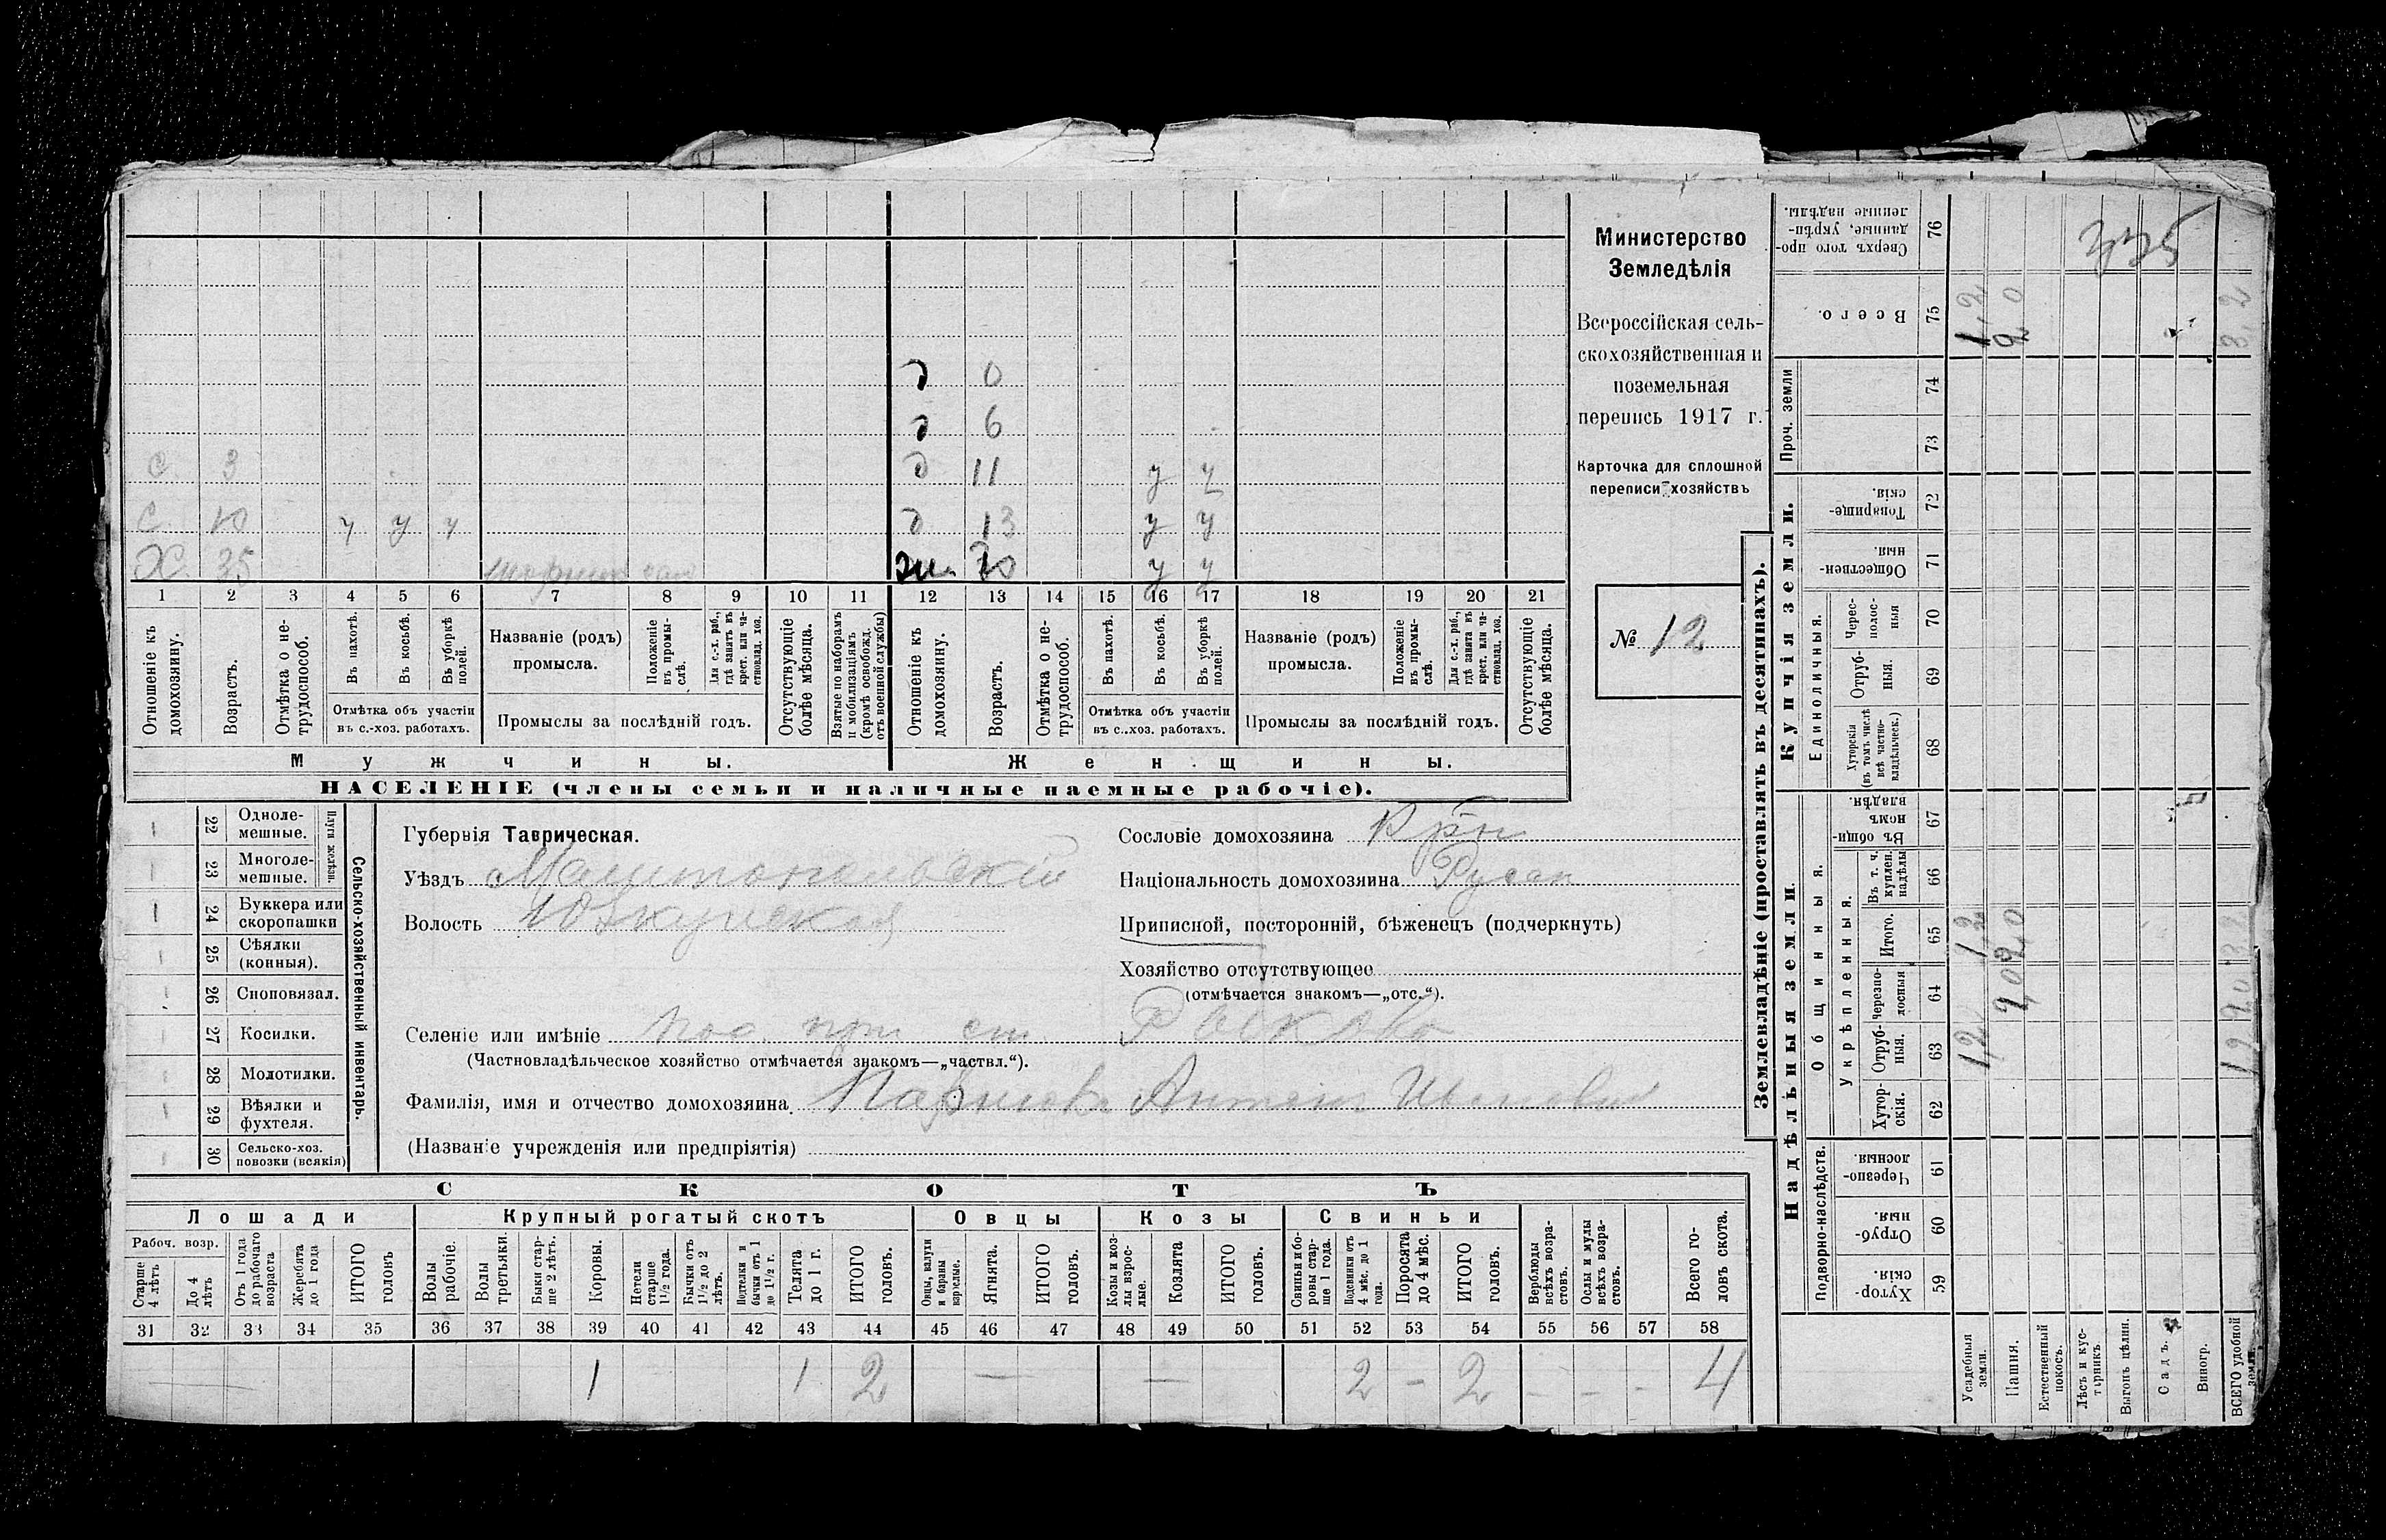 Министерство
Земледѣлія
Всероссійская сель-
скохозяйственная и
поземельная
перепись 1917 г.
Карточка для сплошной
переписи хозяйствъ
№ 12
д 0
д 6
с 3 д 11 у у
с 10 у у у д 13 у у
Х 35 ж 30 у у
1 2 3 4 5 6 7 8 9 10 11 12 13 14 15 16 17 18 19 20 21
Отношеніе къ домохозяину.
Возрастъ.
Отмѣтка о не-трудоспособ.
Въ пахотѣ.
Въ косьбѣ.
Въ уборкѣ полей.
Отмѣтка объ участіи
въ с.-хоз. работахъ.
Названіе (родъ)
промысла.
Положеніе въ промы-слѣ.
Для с.-х. раб., гдѣ занятъ въ крест. или ча-стновлад. хоз.
Промыслы за послѣдній годъ.
Отсутствующіе болѣе мѣсяца.
Взятые по наборамъ и мобилизаціямъ (кромѣ освобожд. отъ военной службы)
Отношеніе къ домохозяину.
Возрастъ.
Отмѣтка о не-трудоспособ.
Въ пахотѣ.
Въ косьбѣ.
Въ уборкѣ полей.
Отмѣтка объ участіи
въ с.-хоз. работахъ.
Названіе (родъ)
промысла.
Положеніе въ промы-слѣ.
Для с.-х. раб., гдѣ занята въ крест. или ча-стновлад. хоз.
Промыслы за послѣдній годъ.
Отсутствующіе болѣе мѣсяца.
Мужчины. Женщины.
НАСЕЛЕНІЕ (члены семьи и наличные наемные рабочіе).
Сельско-хозяйственный инвентарь.
Плуги желѣзн.
22 Одноле-мешные.
23 Многоле-мешные.
24 Буккера или скоропашки
25 Сѣялки (конныя).
26 Сноповязал.
27 Косилки.
28 Молотилки.
29 Вѣялки и фухтеля.
30 Сельско-хоз. повозки (всякія)
Губернія Таврическая.
Уѣздъ Мелитопольскій
Волость Юзкуйская
Сословіе домохозяина Крн
Національность домохозяина Русск
Приписной, посторонній, бѣженецъ (подчеркнуть)
Хозяйство отсутствующее
(отмѣчается знакомъ—„отс.“).
Селеніе или имѣніе пос. при ст. Рыково
(Частновладѣльческое хозяйство отмѣчается знакомъ—„частвл.“).
Фамилія, имя и отчество домохозяина Антон Иванович
(Названіе учрежденія или предпріятія)
СКОТЪ
Лошади Крупный рогатый скотъ Овцы Козы Свиньи
Рабоч. возр.
Старше 4 лѣтъ
До 4 лѣтъ
Отъ 1 года до рабочаго возраста
Жеребята до 1 года
ИТОГО головъ
Волы рабочіе.
Волы третьяки.
Быки стар-ше 2 лѣтъ.
Коровы.
Нетели старше 1½ года.
Бычки отъ 1½ до 2 лѣтъ.
Подтелки и бычки отъ 1 до 1½ г.
Телята до 1 г.
ИТОГО головъ.
Овцы, валухи и бараны взрослые.
Ягнята.
ИТОГО головъ.
Козы и коз-лы взрос-лые.
Козлята
ИТОГО головъ.
Свиньи и бо-ровы стар-ше 1 года.
Подсвинки отъ 4 мѣс. до 1 года.
Поросята до 4 мѣс.
ИТОГО головъ.
Верблюды всѣхъ возра-стовъ.
Ослы и мулы всѣхъ возра-стовъ.
Всего го-ловъ скота.
31 32 33 34 35 36 37 38 39 40 41 42 43 44 45 46 47 48 49 50 51 52 53 54 55 56 57 58
1 1 2 — — 2 – 2 – – – 4
Землевладѣніе (проставлять въ десятинахъ).
Надѣльныя земли. Купчія земли. Проч. земли
Подворно-наслѣдств.
Общинныя.
Укрѣпленныя.
Единоличныя.
Сверхъ того про-данные, укрѣп-ленные надѣлы. 76
Всего. 75
74
73
Товарище-скія. 72
Обществен-ныя. 71
Черес-полос-ныя 70
Отруб-ныя. 69
Хуторскія (въ томъ числѣ всѣ частно-владѣльческ.) 68
Въ общи-номъ владѣн. 67
Въ т. ч. куплен. надѣлы 66
Итого. 65
Черезпо-лосныя 64
Отруб-ныя. 63
Хутор-скія. 62
Черезпо-лосныя. 61
Отруб-ныя. 60
Хутор-скія. 59
Усадебныя земли.
Пашня.
Естественный покосъ.
Лѣсъ и кус-тарникъ
Выгонъ цѣлин.
Садъ.
Виногр.
ВСЕГО удобной земли.